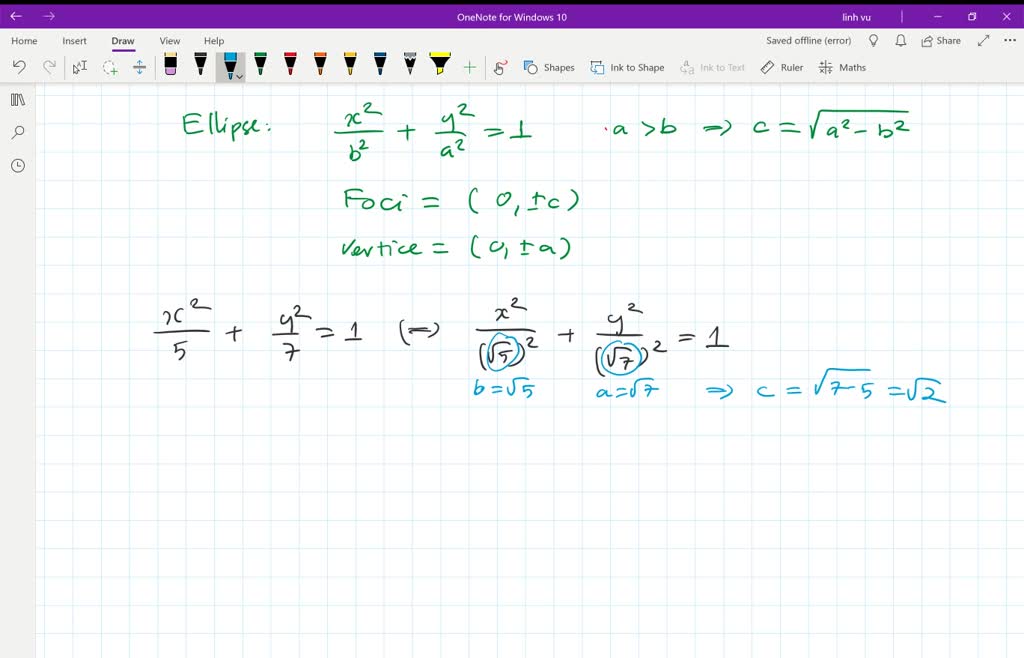 OneNote for Windows 10
linh vu
Home Insert Draw View Help
Saved offline (error)
Share
Shapes Ink to Shape Ink to Text Ruler Maths
Ellipse: x²/b² + y²/a² = 1 . a > b ⇒ c = √(a² - b²)
Foci = (0, ±c)
vertice = (0, ±a)
x²/5 + y²/7 = 1 (⇒) x²/(√5)² + y²/(√7)² = 1
b = √5 a = √7 ⇒ c = √(7-5) = √2